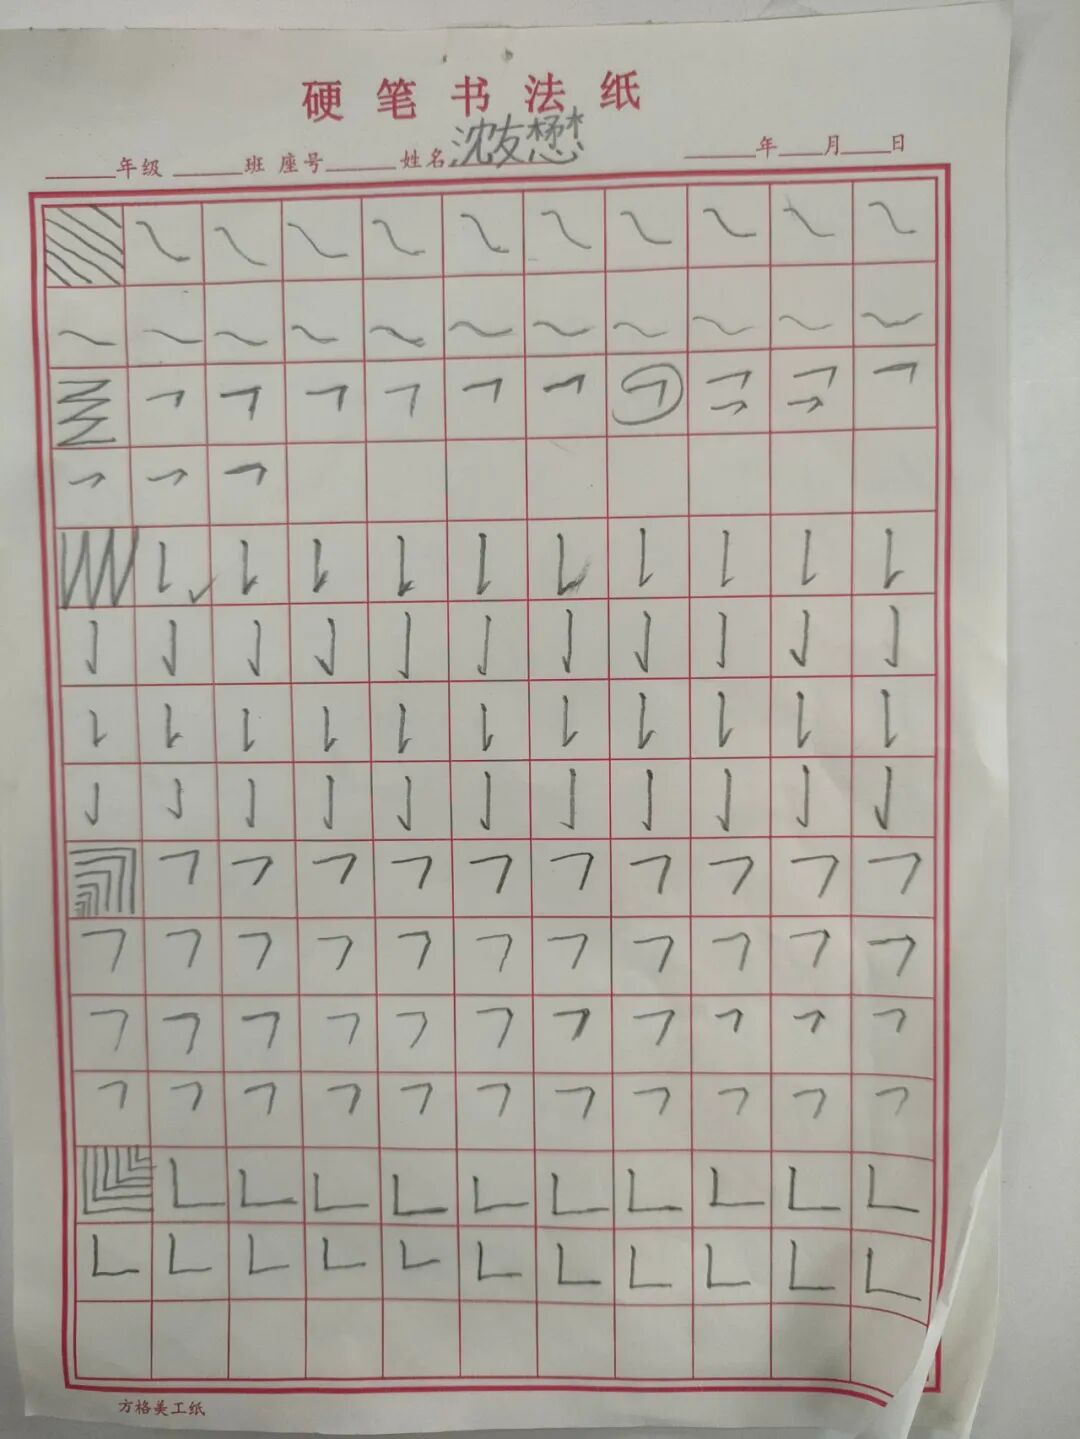 硬笔书法纸
年级 班 座号 姓名 沈友懋 年 月 日
方格美工纸